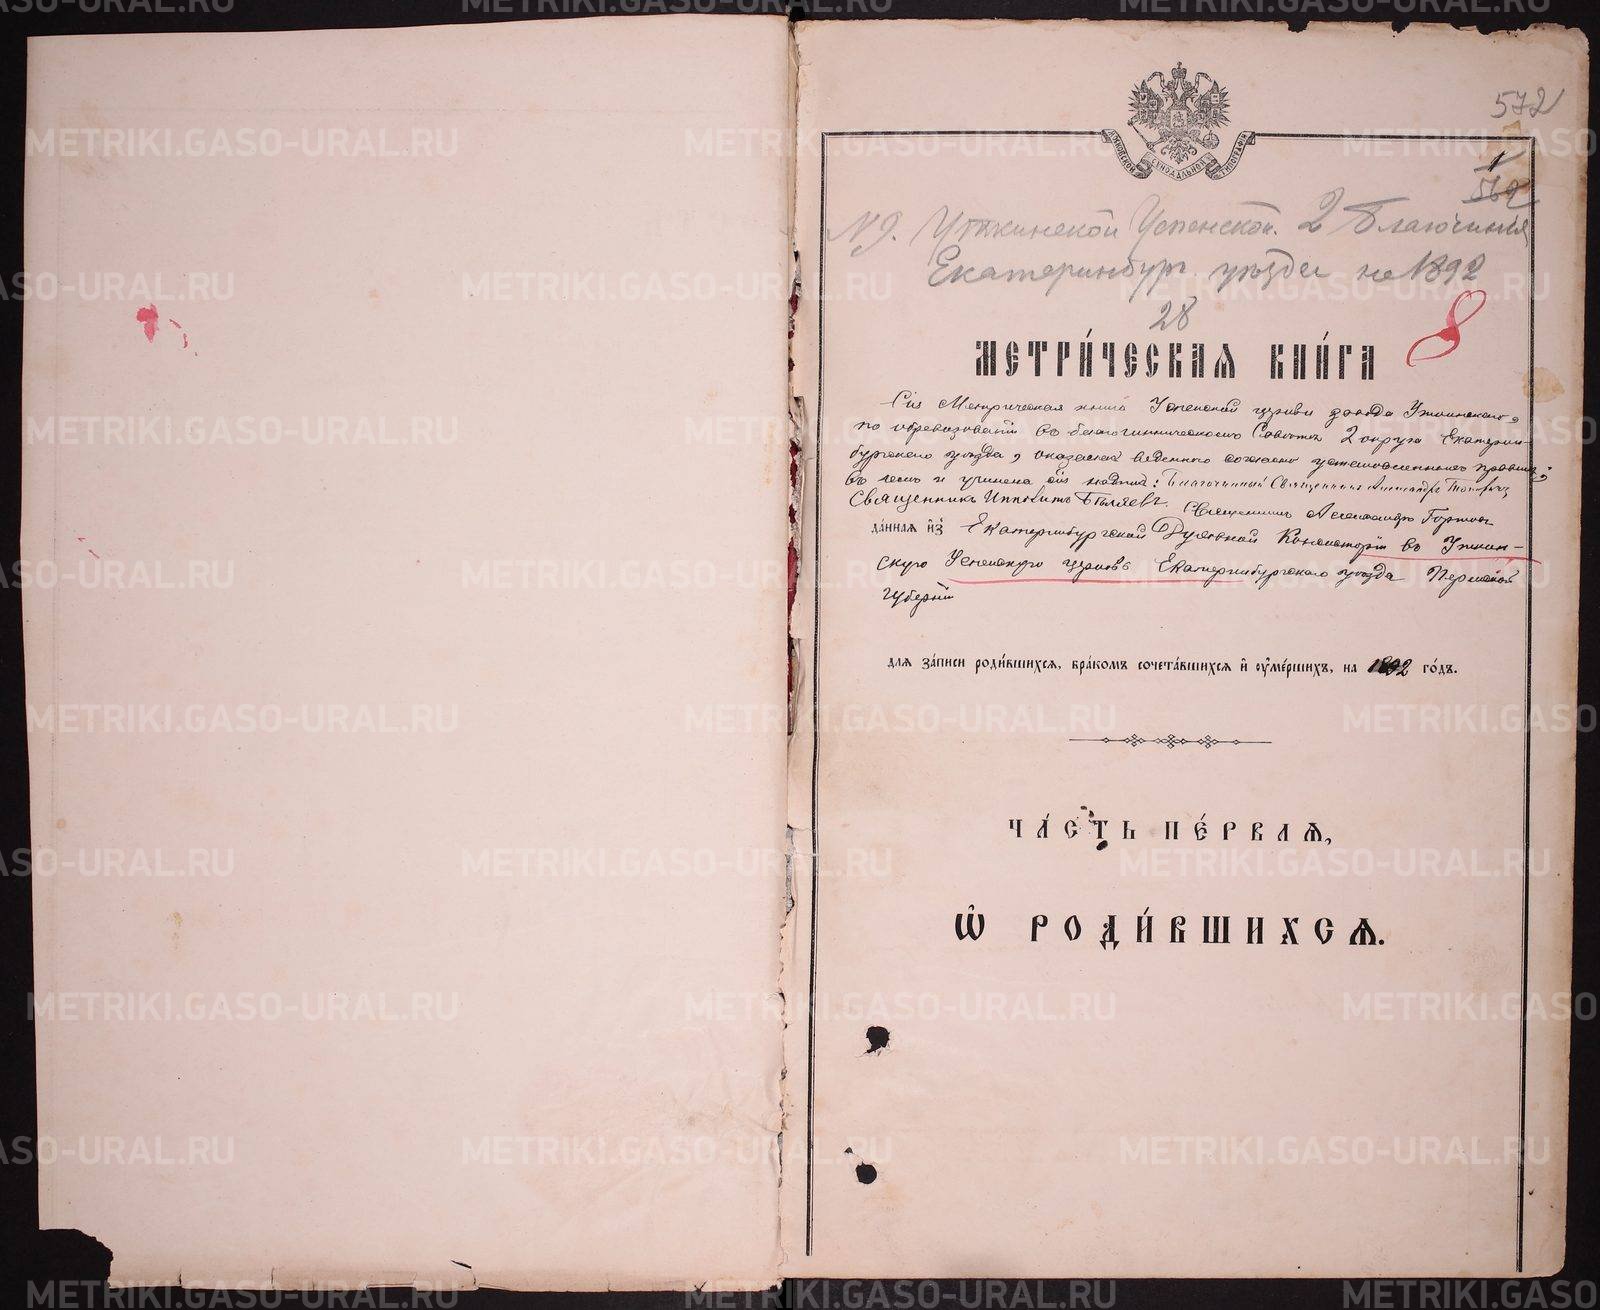 572
МОСКОВСКОЙ СѴНОДАЛЬНОЙ ТИПОГРАФІИ
1
569
N 9. Уткинской Успенской. 2 Благочинія
Екатеринбург. уѣзда на 1892
28
8
МЕТРИ́ЧЕСКАѦ КНИ́ГА
Сія Метрическая книга Успенской церкви завода Уткинскаго,
по освидѣтельствованіи въ благочинническомъ Совѣтѣ 2 округа Екатерин-
бургскаго уѣзда, оказалась веденною согласно установленныхъ правилъ,
въ чемъ и учинена сія надпись: Благочинный Священникъ Александръ
Священникъ Ипполитъ Бѣляевъ. Священникъ Александръ
да́ннаѧ и҆з̾ Екатеринбургской Духовной Консисторіи въ Уткин-
скую Успенскую церковь Екатеринбургскаго уѣзда Пермской
губерніи
для за́писи роди́вшихсѧ, бра́комъ сочета́вшихсѧ и҆ ѹ҆ме́ршихъ, на 1892 го́дъ.
ЧА́СТЬ ПЕ́РВАѦ,
Ѡ҆ РОДИ́ВШИХСѦ.
METRIKI.GASO-URAL.RU